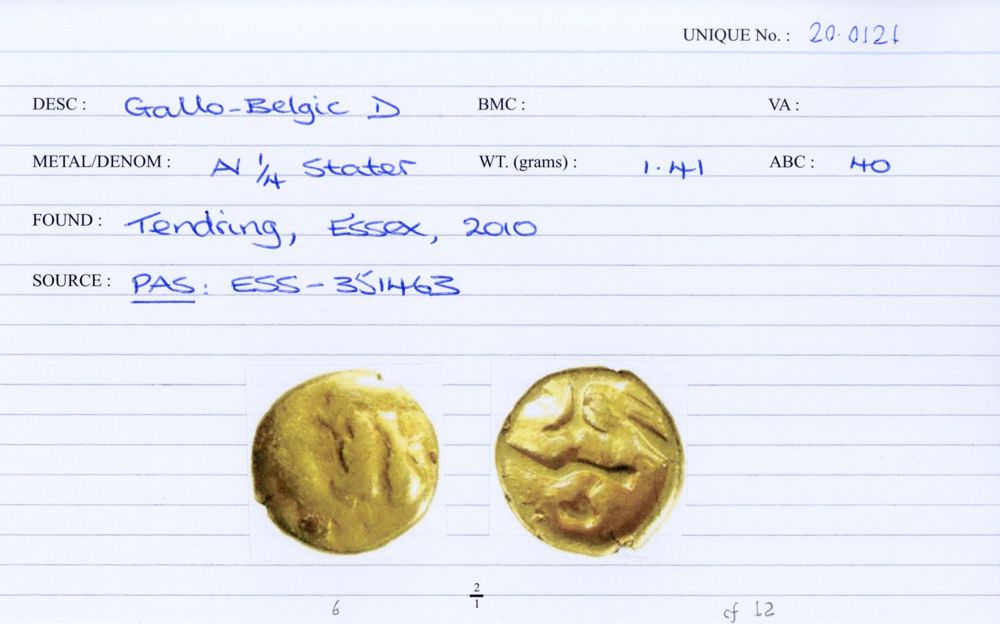 UNIQUE No. : 20·0121
DESC : Gallo-Belgic D BMC : VA :
METAL/DENOM : AV 1/4 Stater WT. (grams) : 1·41 ABC : 40
FOUND : Tendring, Essex, 2010
SOURCE : PAS: ESS-351463
2/1
6 cf 12